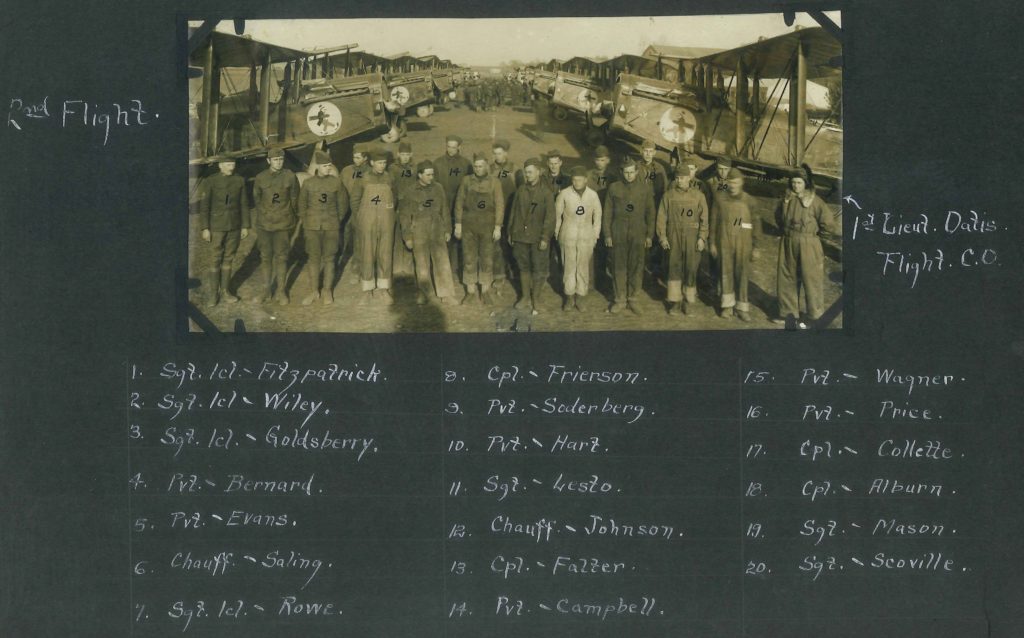 2nd Flight.
1st Lieut. Datis.
Flight. C.O.
1. Sgt. 1cl. ~ Fitzpatrick.
2. Sgt. 1cl ~ Wiley.
3. Sgt. 1cl. ~ Goldsberry.
4. Pvt. ~ Bernard.
5. Pvt. ~ Evans.
6. Chauff. ~ Saling.
7. Sgt. 1cl. ~ Rowe.
8. Cpl. ~ Frierson.
9. Pvt. ~ Soderberg.
10. Pvt. ~ Hart.
11. Sgt. ~ Lesto.
12. Chauff. ~ Johnson.
13. Cpl. ~ Falter.
14. Pvt. ~ Campbell.
15. Pvt. ~ Wagner.
16. Pvt. ~ Price.
17. Cpl. ~ Collette.
18. Cpl. ~ Alburn.
19. Sgt. ~ Mason.
20. Sgt. ~ Scoville.
12 13 14 15 18 20
1 2 3 4 5 6 7 8 9 10 11